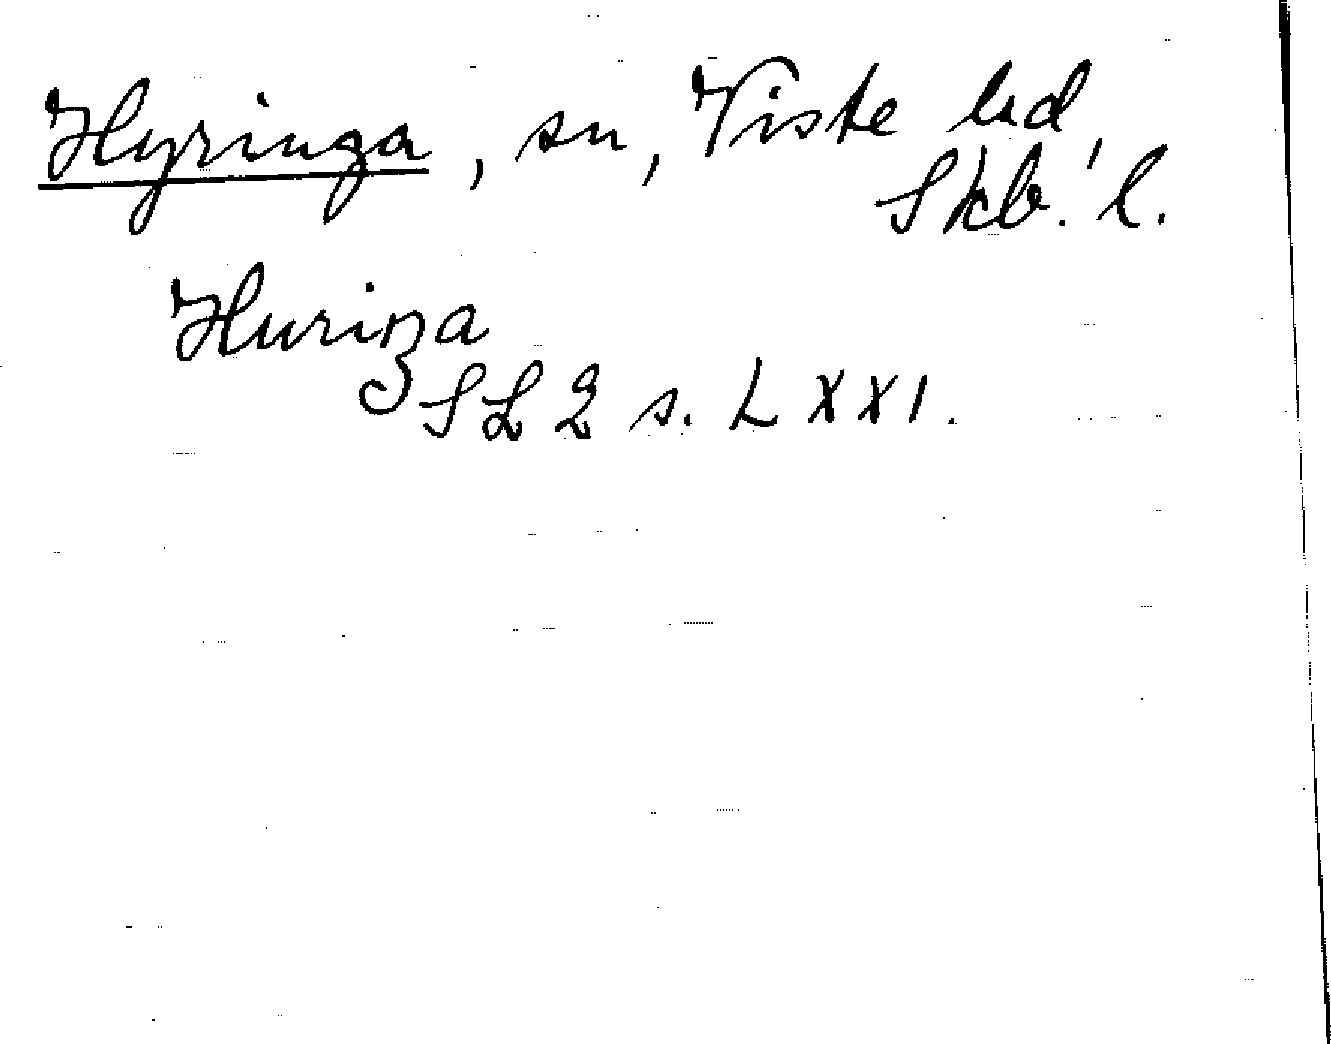 Hyringa, sn, Viste hd,
Skb. l.
Huriŋa
SL 2 s. LXXI.